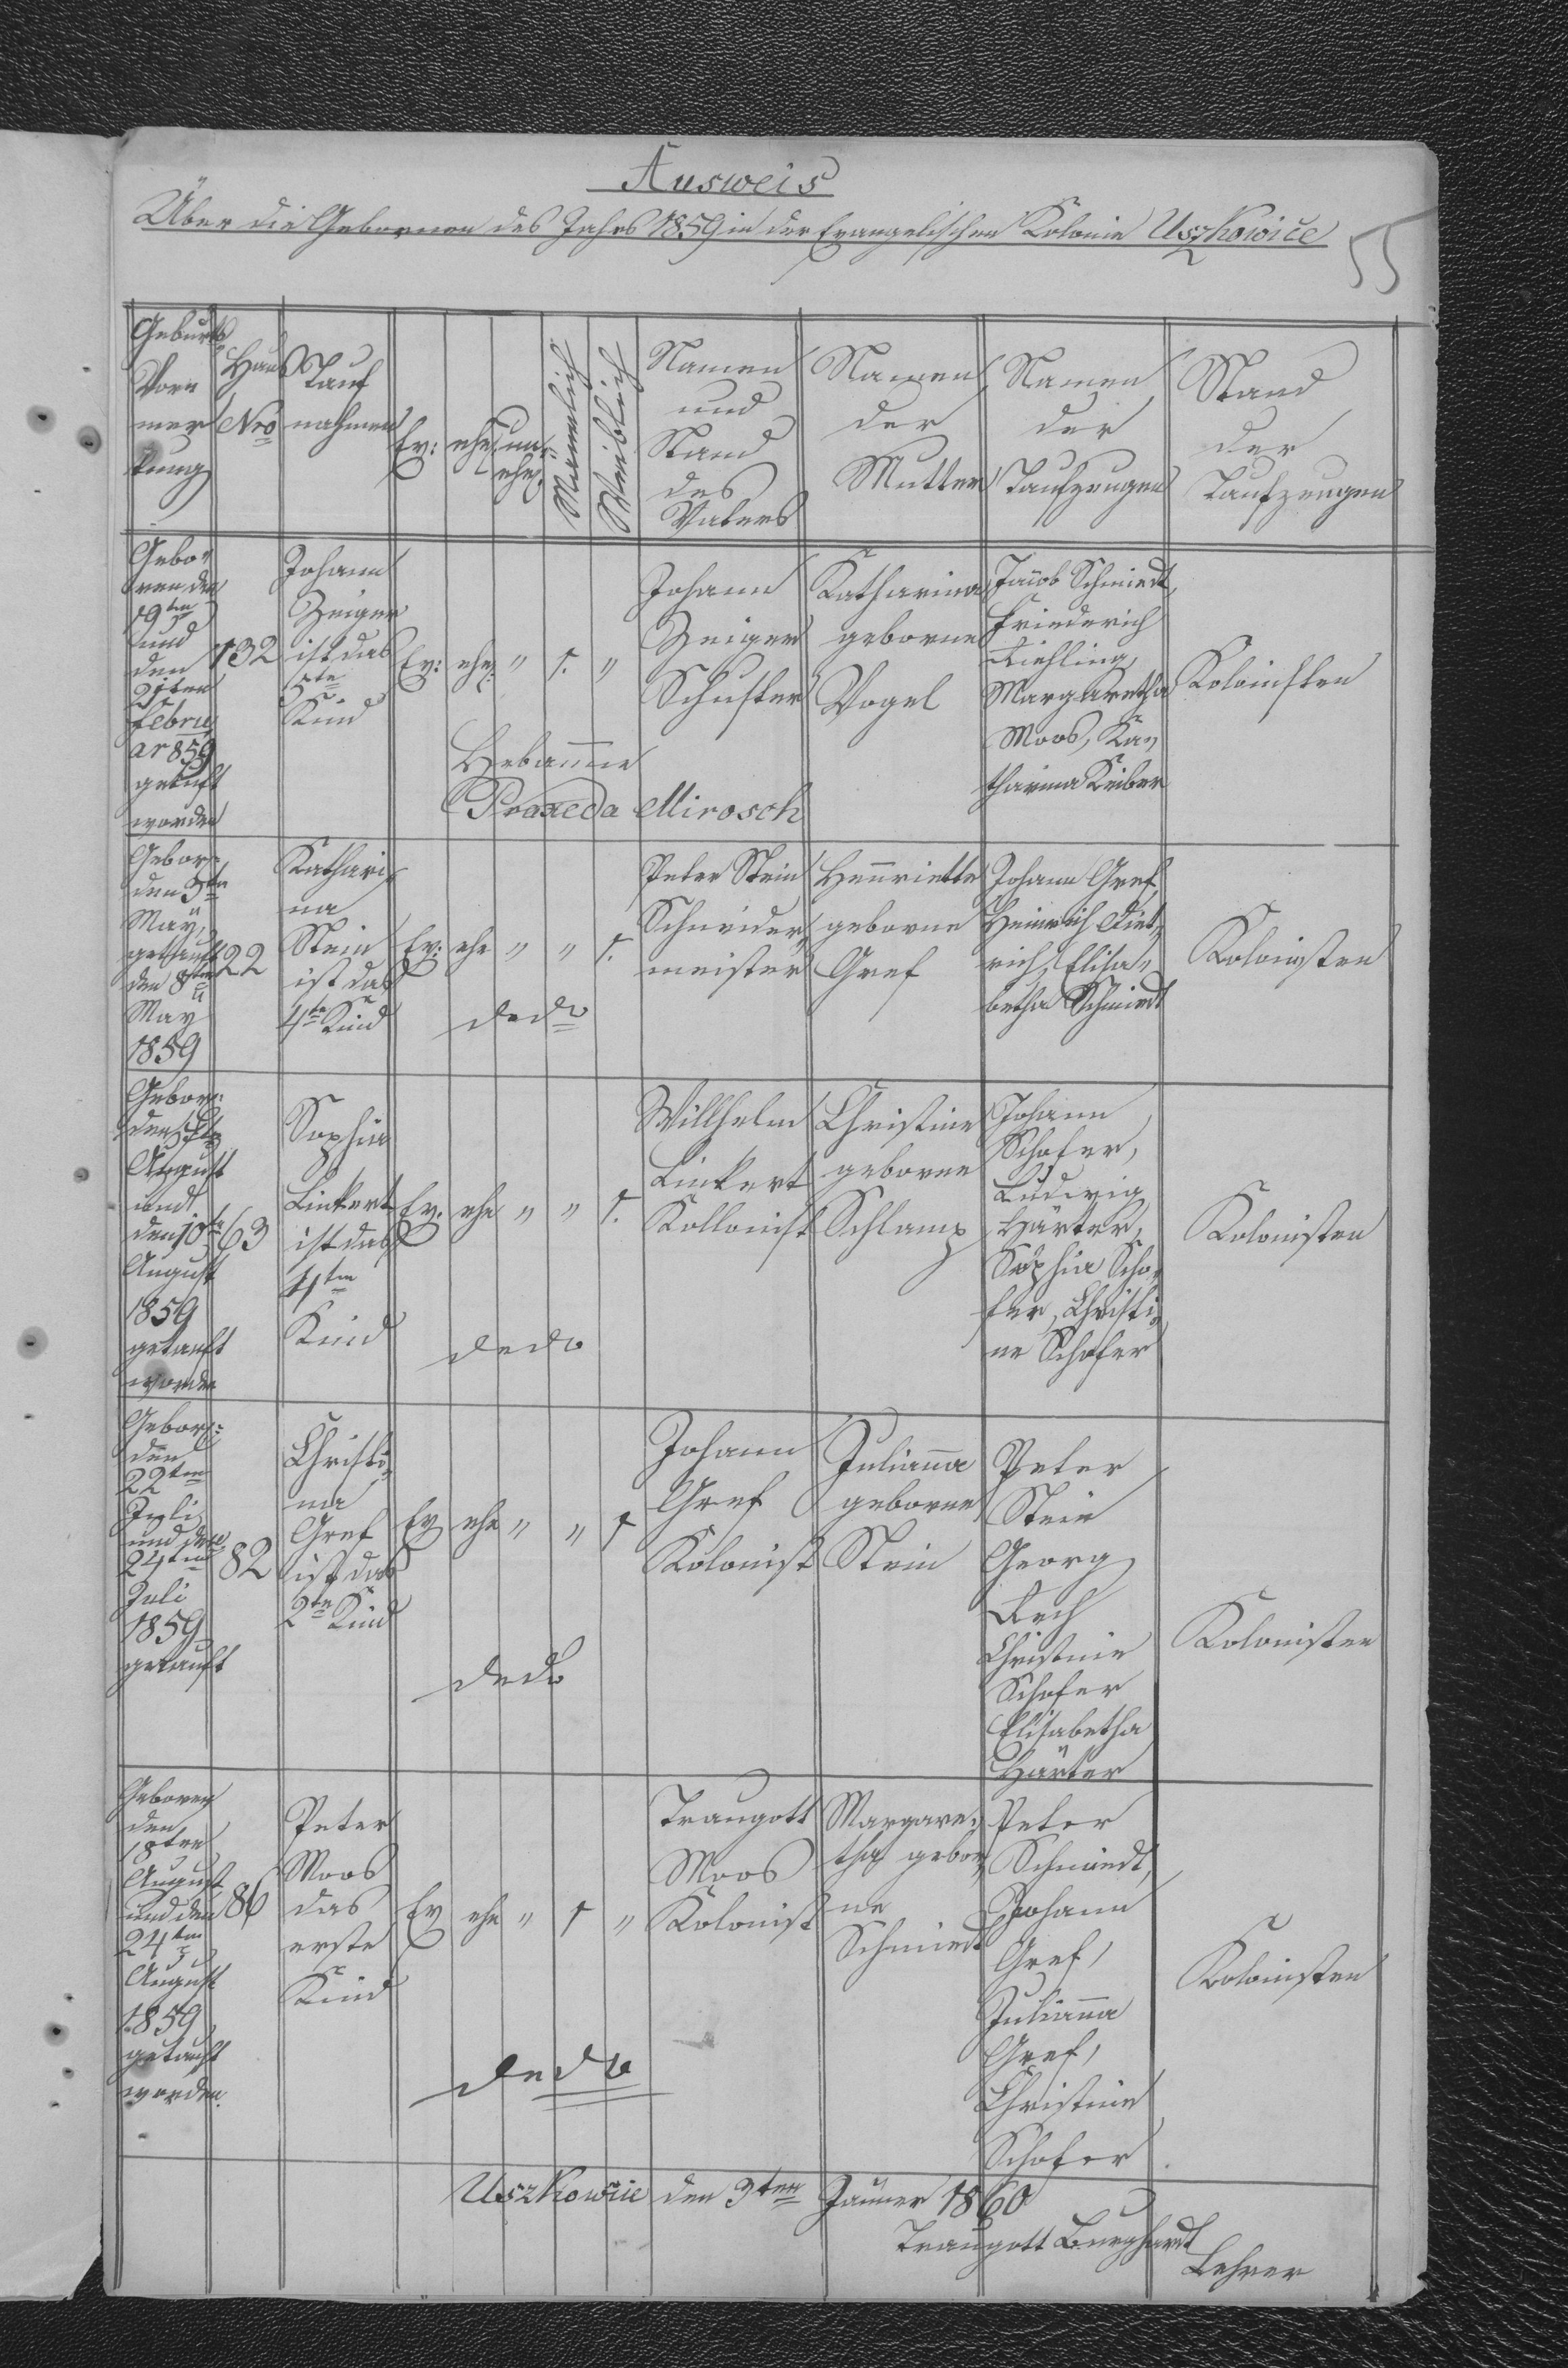 Ausweis
Über die Gebornen des Jahrs 1859 in der Evangelischen Kolonie Uszkowice
55
Geburts
Vorm
mer
kung
Haus
Nro
Tauf
nahmen
Ev:
ehe:
un
ehe:
Mannlich
Weiblich
Namen
und
Stand
des
Vaters
Namen
der
Mutter
Namen
der
Taufzeugen
Stand
der
Taufzeugen
Gebo=
ren den
19ten
und
den
21ten
Febru
ar 859
getauft
worden
132
Johann
Zeiger
ist das
5te
Kind
Ev: ehe: " 1. "
Hebamme
Praxeda Mirosch
Johann
Zeiger
Schuster
Katharina
geborne
Vogel
Jacob Schmiedt,
Friederich
Kiehling,
Margaretha
Moos, Ka=
tharina Keiber
Kolonisten
Gebor=
den 3ten
May,
getauft
den 8ten
May
1859
22
Kathari=
na
Stein
ist das
4te Kind
Ev: ehe " " 1.
dedo
Peter Stein
Schneider=
meister
Hennriette
geborne
Gref
Johann Gref,
Heinrich Diet=
rich, Elisa=
betha Schmiedt
Kolonisten
Gebor:
den
August
und
den 10te
August
1859
getauft
worden
63
Sophia
Linkert
ist das
4ten
Kind
Ev: ehe " " 1.
dedo
Willhelm
Linkert
Kollonist
Christine
geborne
Schlamp
Johann
Schofer,
Ludwig
Härter,
Sophia Scho=
fer, Christi=
ne Schofer
Kolonisten
Gebor:
den
22ten
Juli
und den
24ten
Juli
1859
getauft
82
Christi=
na
Gref
ist das
2te Kind
Ev ehe " " 1
dedo
Johann
Gref
Kolonist
Julianna
geborne
Stein
Peter
Stein
Georg
Christine
Schofer
Elisabetha
Härter
Kolonisten
Geboren
den
18ten
August
und den
24ten
August
1859
getauft
worden.
86
Peter
Moos
das
erste
Kind
Ev ehe " 1 "
dedo
Traugott
Moos
Kolonist
Margare=
tha gebor=
ne
Schmiedt
Peter
Schmiedt,
Johann
Gref,
Julianna
Gref,
Christine
Schofer
Kolonisten
Uszkowice den 3ten Jänner 1860
Traugott Burghardt
Lehrer